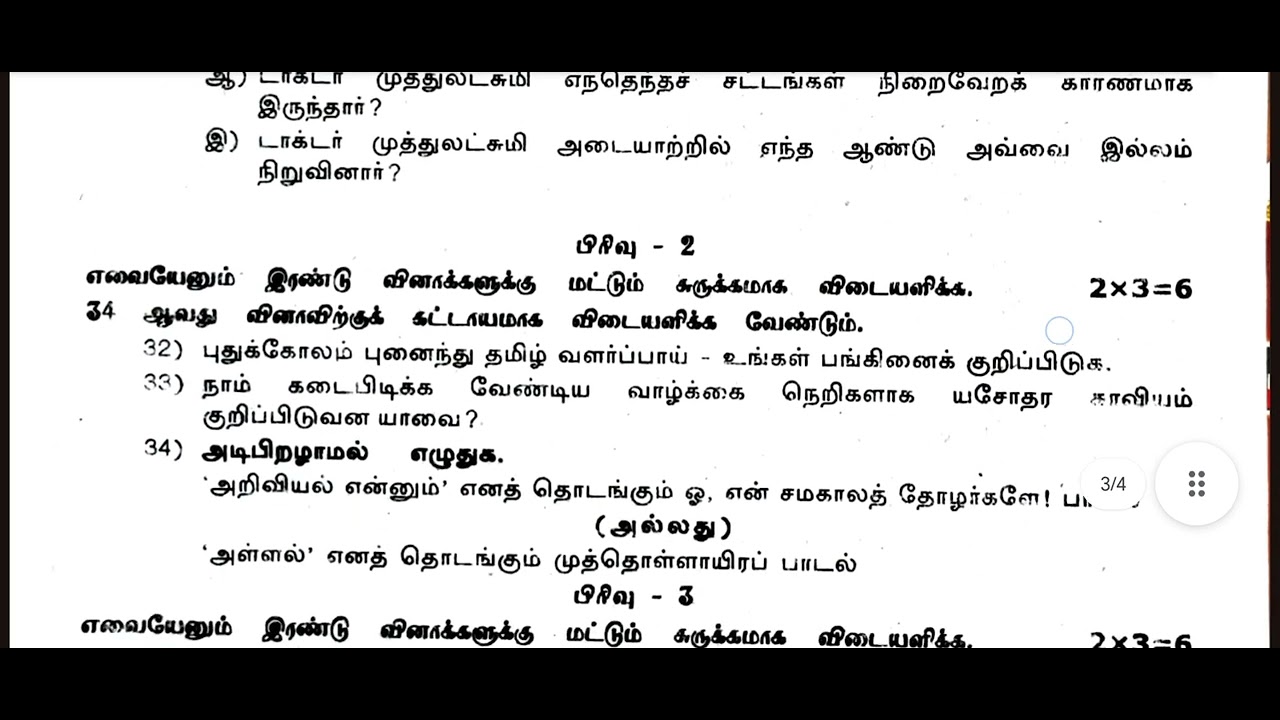 ஆ) டாக்டர் முத்துலட்சுமி எந்தெந்தச் சட்டங்கள் நிறைவேறக் காரணமாக
இருந்தார்?
இ) டாக்டர் முத்துலட்சுமி அடையாற்றில் எந்த ஆண்டு அவ்வை இல்லம்
நிறுவினார்?
பிரிவு - 2
எவையேனும் இரண்டு வினாக்களுக்கு மட்டும் சுருக்கமாக விடையளிக்க. 2×3=6
34 ஆவது வினாவிற்குக் கட்டாயமாக விடையளிக்க வேண்டும்.
32) புதுக்கோலம் புனைந்து தமிழ் வளர்ப்பாய் - உங்கள் பங்கினைக் குறிப்பிடுக.
33) நாம் கடைபிடிக்க வேண்டிய வாழ்க்கை நெறிகளாக யசோதர காவியம்
குறிப்பிடுவன யாவை?
34) அடிபிறழாமல் எழுதுக.
'அறிவியல் என்னும்' எனத் தொடங்கும் ஓ, என் சமகாலத் தோழர்களே!
3/4
(அல்லது)
'அள்ளல்' எனத் தொடங்கும் முத்தொள்ளாயிரப் பாடல்
பிரிவு - 3
எவையேனும் இரண்டு வினாக்களுக்கு மட்டும் சுருக்கமாக விடையளிக்க. 2×3=6